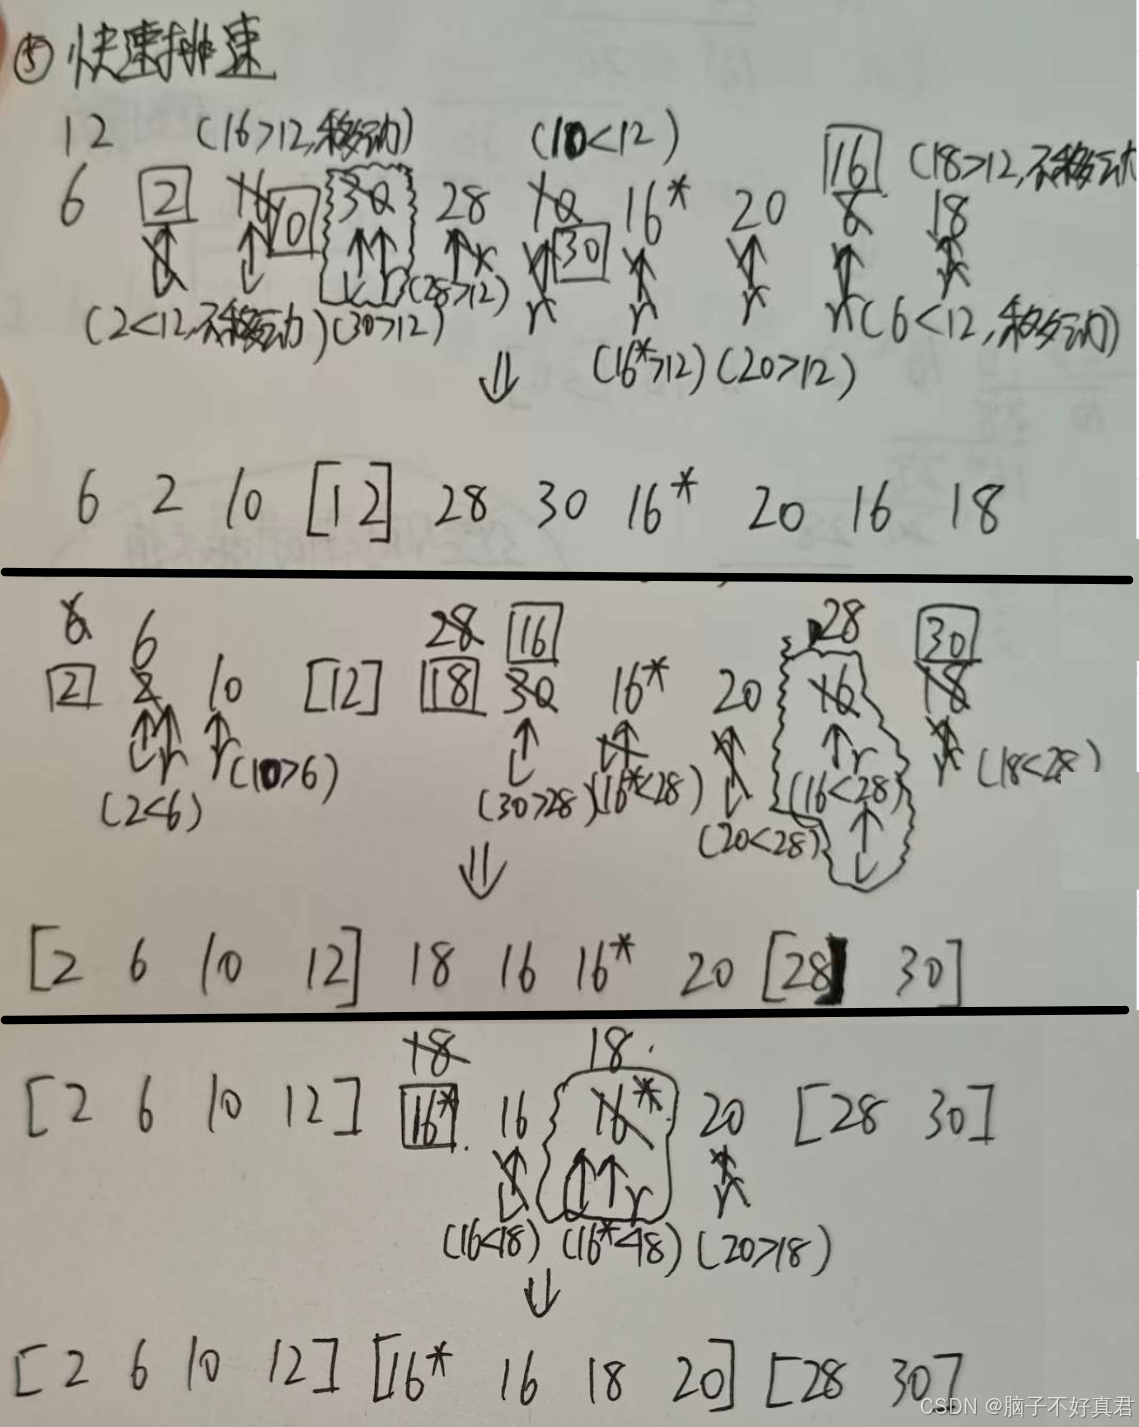 ⑤ 快速排速
12 (16>12,移动) (10<12) 16 (18>12,不移动)
6 2 16 10 30 28 10 30 16* 20 6 18
L L L r (28>12) r r r r r r
(2<12,不移动) (30>12) (6<12,移动)
⇓ (16*>12) (20>12)
6 2 10 [12] 28 30 16* 20 16 18
6 6 28 16 28 30
2 2 10 [12] 18 30 16* 20 16 18
L r r (10>6) L L L r r (18<28)
(2<6) (30>28) (16*<28) (16<28)
(20<28)
⇓ L
[2 6 10 12] 18 16 16* 20 [28 30]
18 18
[2 6 10 12] 16* 16 16* 20 [28 30]
L r r
(16<18) (16*<18) (20>18)
⇓
[2 6 10 12] [16* 16 18 20] [28 30]
CSDN @脑子不好真君